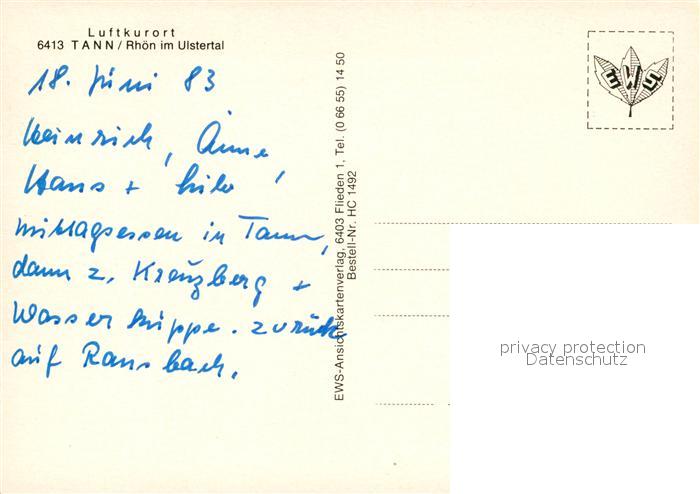 Luftkurort
6413 TANN / Rhön im Ulstertal
18. Juni 83
Heinrich, Änne,
Hans + Lilo
Mittagsessen in Tann,
dann z. Kreuzberg +
Wasserkuppe. zurück
auf Ransbach.
EWS-Ansichtskartenverlag, 6403 Flieden 1, Tel. (0 66 55) 14 50
Bestell-Nr. HC 1492
EWS
privacy protection
Datenschutz